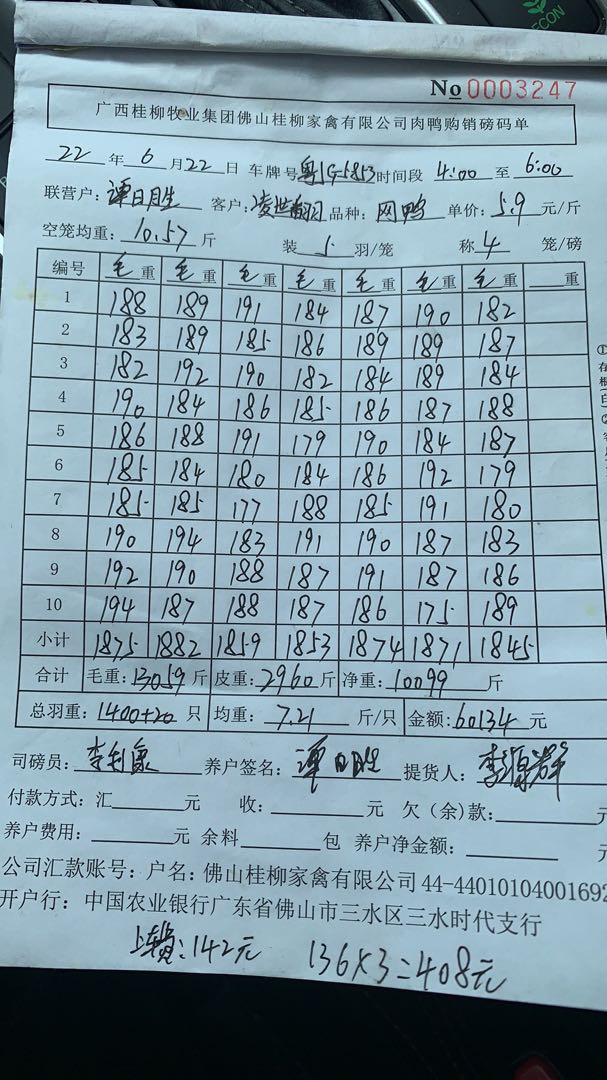 ECON
No 0003247
广西桂柳牧业集团佛山桂柳家禽有限公司肉鸭购销磅码单
22 年 6 月 22 日 车牌号 粤JG5853 时间段 4:00 至 6:00
联营户: 谭日胜 客户: 凌世翻羽 品种: 网鸭 单价: 5.9 元/斤
空笼均重: 10.57 斤 装 5 羽/笼 称 4 笼/磅
编号 毛重 毛重 毛重 毛重 毛重 毛重 毛重 重
1 188 189 191 184 187 190 182
2 183 189 185 186 189 189 187
3 182 192 190 182 184 189 184
4 190 184 186 185 186 187 188
5 186 188 191 179 190 184 187
6 185 184 180 184 186 192 179
7 185 185 177 188 185 191 180
8 190 194 183 191 190 187 183
9 192 190 188 187 191 187 186
10 194 187 188 187 186 175 189
小计 1875 1882 1859 1853 1874 1871 1845
合计 毛重: 13059 斤 皮重: 2960 斤 净重: 10099 斤
总羽重: 1400+20 只 均重: 7.21 斤/只 金额: 60134 元
司磅员: 李利康 养户签名: 谭日胜 提货人: 李源群
付款方式: 汇 元 收: 元 欠(余)款: 元
养户费用: 元 余料 包 养户净金额: 元
公司汇款账号: 户名: 佛山桂柳家禽有限公司 44-44010104001692
开户行: 中国农业银行广东省佛山市三水区三水时代支行
上车费: 142元 136×3=408元